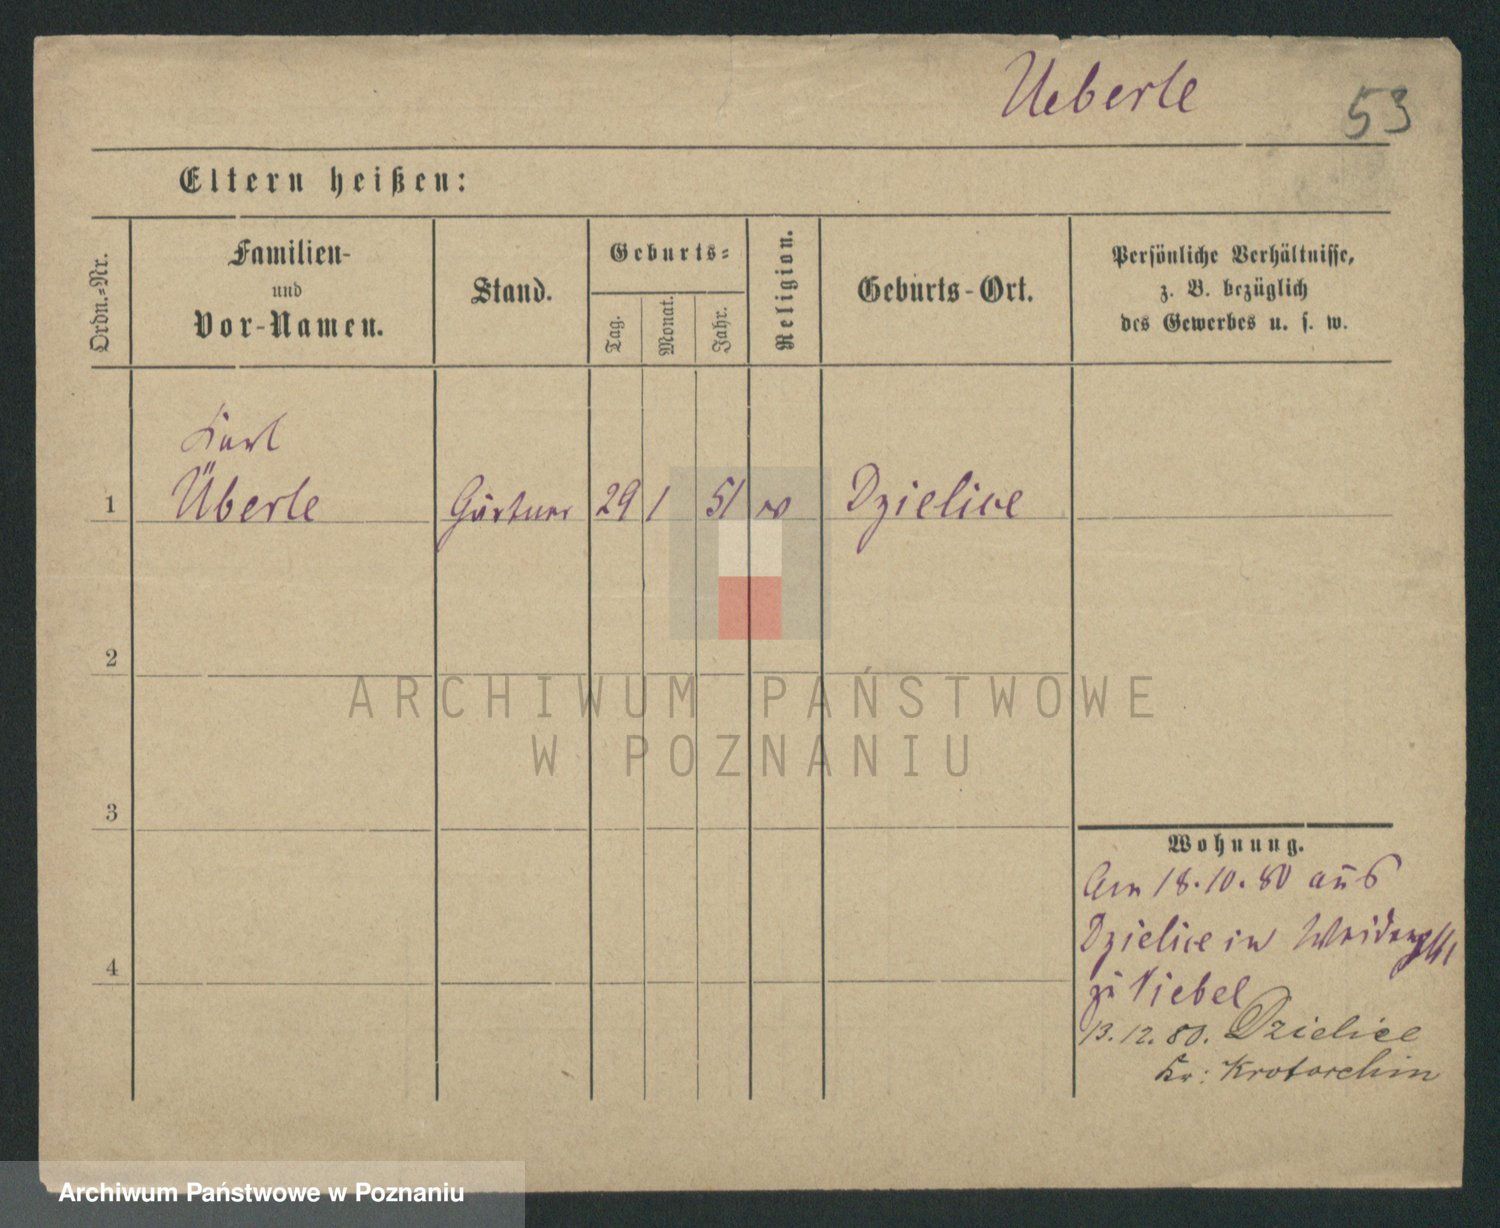 Ueberle
53
Eltern heißen:
Ordn.-Nr.
Familien-
und
Vor-Namen.
Stand.
Geburts-
Tag.
Monat.
Jahr.
Religion.
Geburts-Ort.
Persönliche Verhältnisse,
z. B. bezüglich
des Gewerbes u. s. w.
Karl
1 Überle Gärtner 29 1 51 Dzielice
2
ARCHIWUM PAŃSTWOWE
W POZNANIU
3
Wohnung.
Am 18.10.80 aus
Dzielice in
4
zu Niebel
13.12.80. Dzielice
Kr: Krotoschin
Archiwum Państwowe w Poznaniu